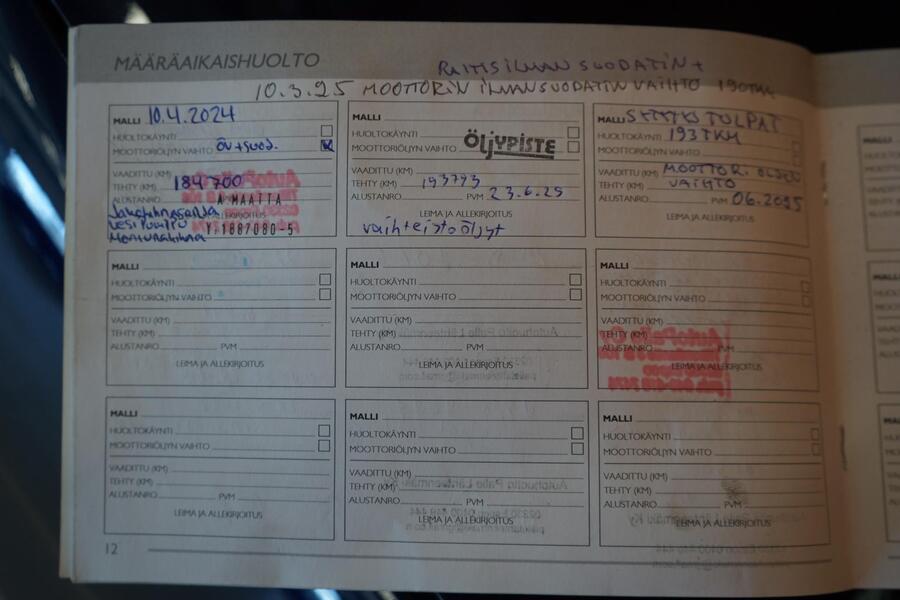 MÄÄRÄAIKAISHUOLTO
RAITISILMAN SUODATIN +
10.3.25 MOOTTORIN ILMANSUODATIN VAIHTO 190TKM
MALLI 10.4.2024
HUOLTOKÄYNTI
MOOTTORIÖLJYN VAIHTO ÖV+SUOD.
VAADITTU (KM)
TEHTY (KM) 184 700
ALUSTANRO A MAATTA
LEIMA JA ALLEKIRJOITUS
Jakohihnasarja
vesipumppu
Y:1887080-5
MALLI
HUOLTOKÄYNTI
MOOTTORIÖLJYN VAIHTO
ÖLJYPISTE
VAADITTU (KM)
TEHTY (KM) 193793
ALUSTANRO PVM 23.6.25
LEIMA JA ALLEKIRJOITUS
vaihteistoöljyt
MALLI SYTYTYSTULPAT
HUOLTOKÄYNTI 193TKM
VAADITTU (KM) MOOTTORI ÖLJYN
TEHTY (KM) VAIHTO
ALUSTANRO PVM 06.2025
LEIMA JA ALLEKIRJOITUS
MALLI
HUOLTOKÄYNTI
MOOTTORIÖLJYN VAIHTO
VAADITTU (KM)
TEHTY (KM)
ALUSTANRO PVM
LEIMA JA ALLEKIRJOITUS
MALLI
HUOLTOKÄYNTI
MOOTTORIÖLJYN VAIHTO
VAADITTU (KM)
TEHTY (KM)
ALUSTANRO PVM
LEIMA JA ALLEKIRJOITUS
MALLI
HUOLTOKÄYNTI
MOOTTORIÖLJYN VAIHTO
VAADITTU (KM)
TEHTY (KM)
ALUSTANRO PVM
LEIMA JA ALLEKIRJOITUS
MALLI
HUOLTOKÄYNTI
MOOTTORIÖLJYN VAIHTO
VAADITTU (KM)
TEHTY (KM)
ALUSTANRO PVM
LEIMA JA ALLEKIRJOITUS
MALLI
HUOLTOKÄYNTI
MOOTTORIÖLJYN VAIHTO
VAADITTU (KM)
TEHTY (KM)
ALUSTANRO PVM
LEIMA JA ALLEKIRJOITUS
MALLI
HUOLTOKÄYNTI
MOOTTORIÖLJYN VAIHTO
VAADITTU (KM)
TEHTY (KM)
ALUSTANRO PVM
LEIMA JA ALLEKIRJOITUS
12